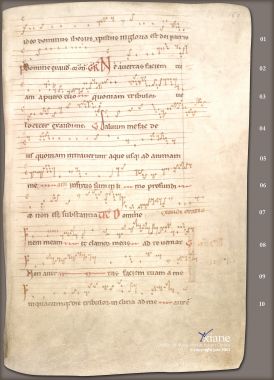 dominus ihesus xpistus in gloria est dei patris
Domine exaudi GR Ne avertas faciem tu
am a puero tuo quoniam tribulor ve
lociter exaudi me Salvum me fac de
us quoniam intraverunt aque usque ad animam
me infixus sum in li mo profundi
et non est substantia TR Domine
exaudi orationem
nem meam et clamor meus ad te veniat
Non aver tas faciem tuam a me
In quacumque die tribulor inclina ad me aurem
01
02
03
04
05
06
07
08
09
10